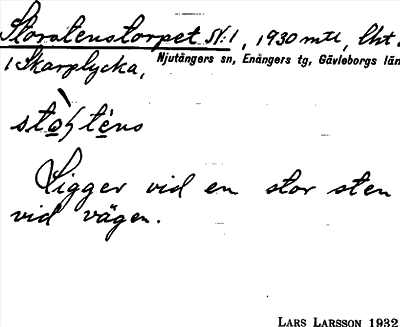 Storstenstorpet Nr 1, 1930 mtl, lht
i Skarplycka,
Njutångers sn, Enångers tg, Gävleborgs län
Ligger vid en stor sten
vid vägen.
LARS LARSSON 1932